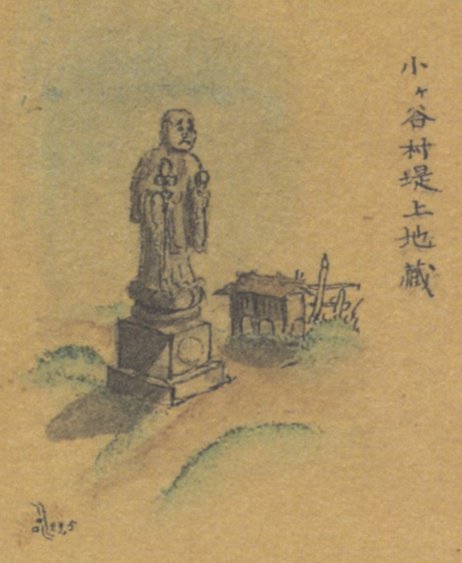 小ヶ谷村堤上地蔵
29,5